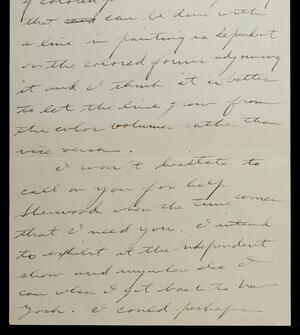 of colored f
that can be done with
a line in painting is dependent
on the colored forms adjoining
it and I think it is better
to let the line grow from
the color volumes rather than
vice versa.
I won't hesitate to
call on you for help
Sherwood when the time comes
that I need you. I intend
to exhibit at the Independent
show and anywhere else I
can when I get back to New
York. I could perhaps